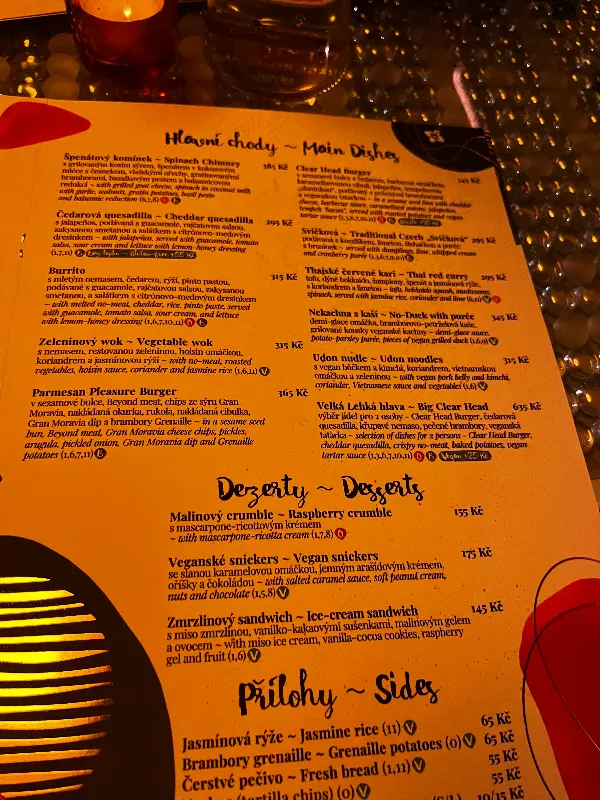 Hlavní chody ~ Main Dishes
Špenátový komínek ~ Spinach Chimney 385 Kč
s grilovaným kozím sýrem, špenátem v kokosovém
mléce s česnekem, vlašskými ořechy, gratinovanými
bramborami, bazalkovým pestem a balsamicovou
redukcí ~ with grilled goat cheese, spinach in coconut milk
with garlic, walnuts, gratin potatoes, basil pesto
and balsamic reduction (6,7,8)
Čedarová quesadilla ~ Cheddar quesadilla 295 Kč
s jalapeños, podávaná s guacamole, rajčatovou salsou,
zakysanou smetanou a salátkem s citrónovo-medovým
dresinkem ~ with jalapeños, served with guacamole, tomato
salsa, sour cream and lettuce with lemon-honey dressing
(1,7,11)
Burrito 315 Kč
s mletým nemasem, čedarem, rýží, pinto pastou,
podávané s guacamole, rajčatovou salsou, zakysanou
smetanou, a salátkem s citrónovo-medovým dresinkem
~ with melted no-meat, cheddar, rice, pinto paste, served
with guacamole, tomato salsa, sour cream, and lettuce
with lemon-honey dressing (1,6,7,10,11)
Zeleninový wok ~ Vegetable wok 315 Kč
s nemasem, restovanou zeleninou, hoisin omáčkou,
koriandrem a jasmínovou rýží ~ with no-meat, roasted
vegetables, hoisin sauce, coriander and jasmine rice (1,6,11) V
Parmesan Pleasure Burger 365 Kč
v sezamové bulce, Beyond meat, chips ze sýru Gran
Moravia, nakládaná okurka, rukola, nakládaná cibulka,
Gran Moravia dip a brambory Grenaille ~ in a sesame seed
bun, Beyond meat, Gran Moravia cheese chips, pickles,
arugula, pickled onion, Gran Moravia dip and Grenaille
potatoes (1,6,7,11)
Clear Head Burger 345 Kč
v sezamové bulce s čedarem, barbecue omáčkou,
karamelizovanou cibulí, jalapeños, tempehovou
„slaninkou“, podávaný s pečenými bramborami
a veganskou tatarkou ~ in a sesame seed bun with cheddar
cheese, barbecue sauce, caramelised onion, jalapeños,
tempeh "bacon", served with roasted potatoes and vegan
tartar sauce
Svíčková ~ Traditional Czech „Svíčková“ 295 Kč
podávaná s knedlíkem, limetou, šlehačkou a pyré
z brusinek ~ served with dumplings, lime, whipped cream
and cranberry purée
Thajské červené kari ~ Thai red curry 295 Kč
tofu, dýně hokkaido, žampiony, špenát a jasmínová rýže,
s koriandrem a limetou ~ tofu, hokkaido squash, mushrooms,
spinach, served with jasmine rice, coriander and lime (6,11) V
Nekachna s kaší ~ No-Duck with purée 345 Kč
demi-glace omáčka, bramborovo-petrželová kaše,
grilované kousky veganské kachny ~ demi-glace sauce,
potato-parsley purée, pieces of vegan grilled duck (1,6,9) V
Udon nudle ~ Udon noodles 315 Kč
s vegan bůčkem a kimchi, koriandrem, vietnamskou
omáčkou a zeleninou ~ with vegan pork belly and kimchi,
coriander, Vietnamese sauce and vegetables (1,6) V
Velká Lehká hlava ~ Big Clear Head 635 Kč
výběr jídel pro 2 osoby - Clear Head Burger, čedarová
quesadilla, křupavé nemaso, pečené brambory, veganská
tatarka ~ selection of dishes for 2 persons - Clear Head Burger,
cheddar quesadilla, crispy no-meat, baked potatoes, vegan
tartar sauce (1,3,6,7,10,11) Vegan +25 Kč
Dezerty ~ Desserts
Malinový crumble ~ Raspberry crumble 155 Kč
s mascarpone-ricottovým krémem
~ with mascarpone-ricotta cream (1,7,8)
Veganské snickers ~ Vegan snickers 175 Kč
se slanou karamelovou omáčkou, jemným arašídovým krémem,
oříšky a čokoládou ~ with salted caramel sauce, soft peanut cream,
nuts and chocolate (1,5,8) V
Zmrzlinový sandwich ~ Ice-cream sandwich 145 Kč
s miso zmrzlinou, vanilko-kakaovými sušenkami, malinovým gelem
a ovocem ~ with miso ice cream, vanilla-cocoa cookies, raspberry
gel and fruit (1,6) V
Přílohy ~ Sides
Jasmínová rýže ~ Jasmine rice (11) V 65 Kč
Brambory grenaille ~ Grenaille potatoes (0) V 65 Kč
Čerstvé pečivo ~ Fresh bread (1,11) V 55 Kč
(tortilla chips) (0) V 55 Kč